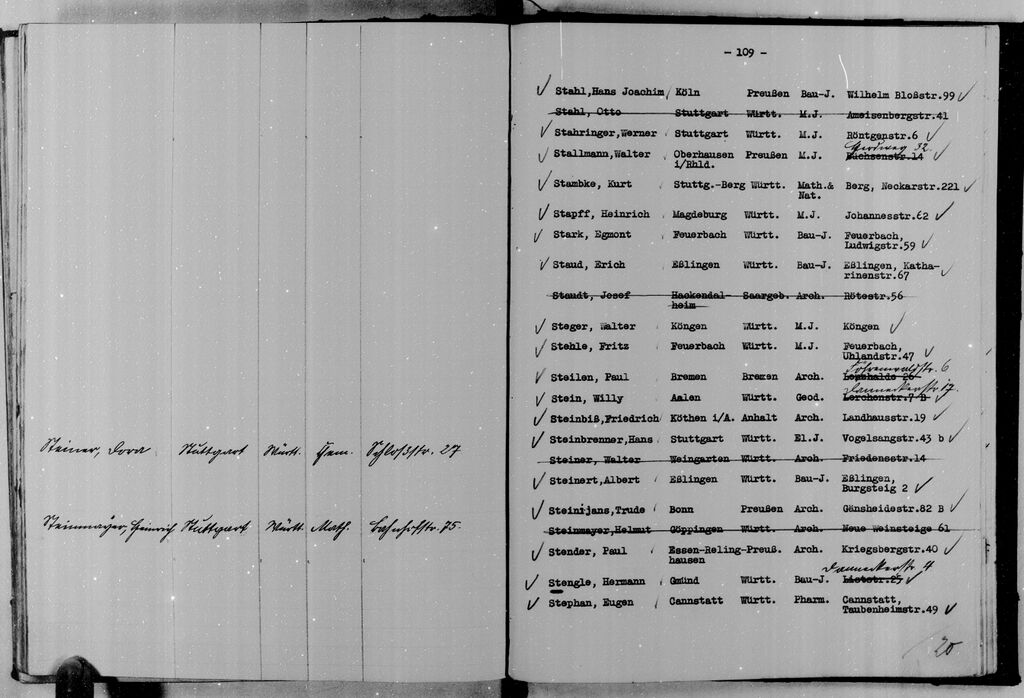 Steiner, Dora Stuttgart Württ. Chem. Schloßstr. 27
Steinmayer, Heinrich Stuttgart Württ. Math. Bahnhofstr. 75
- 109 -
Stahl,Hans Joachim Köln Preußen Bau-J. Wilhelm Bloßstr.99
Stahl, Otto Stuttgart Württ. M.J. Ameisenbergstr.41
Stahringer,Werner Stuttgart Württ. M.J. Röntgenstr.6
Herdweg 32.
Stallmann,Walter Oberhausen Preußen M.J. Büchsenstr.14
i/Rhld.
Stambke, Kurt Stuttg.-Berg Württ. Math.& Berg, Neckarstr.221
Nat.
Stapff, Heinrich Magdeburg Württ. M.J. Johannesstr.62
Stark, Egmont Feuerbach Württ. Bau-J. Feuerbach,
Ludwigstr.59
Staud, Erich Eßlingen Württ. Bau-J. Eßlingen, Katha-
rinenstr.67
Staudt, Josef Hackendal- Saargeb. Arch. Rötestr.56
heim
Steger, Walter Köngen Württ. M.J. Köngen
Stehle, Fritz Feuerbach Württ. M.J. Feuerbach,
Uhlandstr.47
Föhrenwaldstr. 6
Steilen, Paul Bremen Bremen Arch. Lenzhalde 26
Danneckerstr. 17.
Stein, Willy Aalen Württ. Geod. Lerchenstr.7 B
Steinbiß,Friedrich Köthen i/A. Anhalt Arch. Landhausstr.19
Steinbrenner,Hans Stuttgart Württ. El.J. Vogelsangstr.43 b
Steiner, Walter Weingarten Württ. Arch. Friedensstr.14
Steinert,Albert Eßlingen Württ. Bau-J. Eßlingen,
Burgsteig 2
Steinijans,Trude Bonn Preußen Arch. Gänsheidestr.82 B
Steinmayer,Helmut Göppingen Württ. Arch. Neue Weinsteige 61
Stender, Paul Essen-Reling-Preuß. Arch. Kriegsbergstr.40
hausen
Danneckerstr. 4
Stengle, Hermann Gmünd Württ. Bau-J. Liststr.25
Stephan, Eugen Cannstatt Württ. Pharm. Cannstatt,
Taubenheimstr.49
20